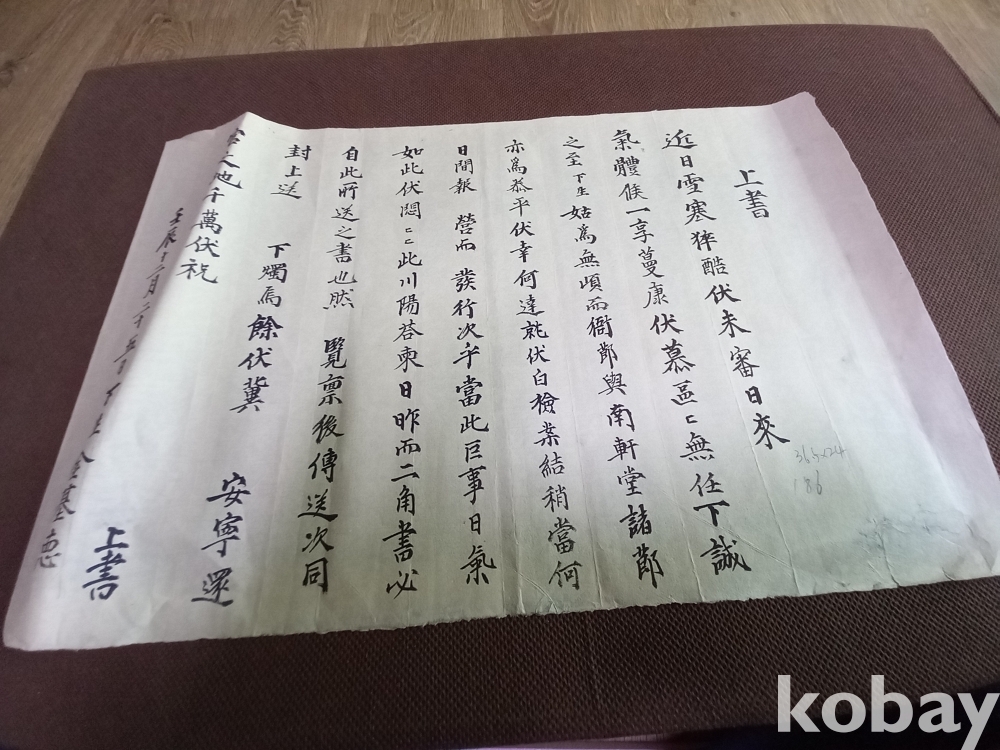 上書
近日雪寒猝酷伏未審日來
氣體候一享蔓康伏慕區〻無任下誠
之至下生 姑爲無頉而衙節與南軒堂諸節
亦爲恭平伏幸何達就伏白檢案結稍當何
日間報 營而 發行次乎當此巨事日氣
如此伏悶〻〻此川陽答柬日昨而二角書必
自此所送之書也然 覽稟後傳送次同
封上送 下燭焉餘伏冀 安寧還
之地千萬伏祝
壬辰十二月二十五日 下生 金基悳
上書
36.5x24
186
kobay